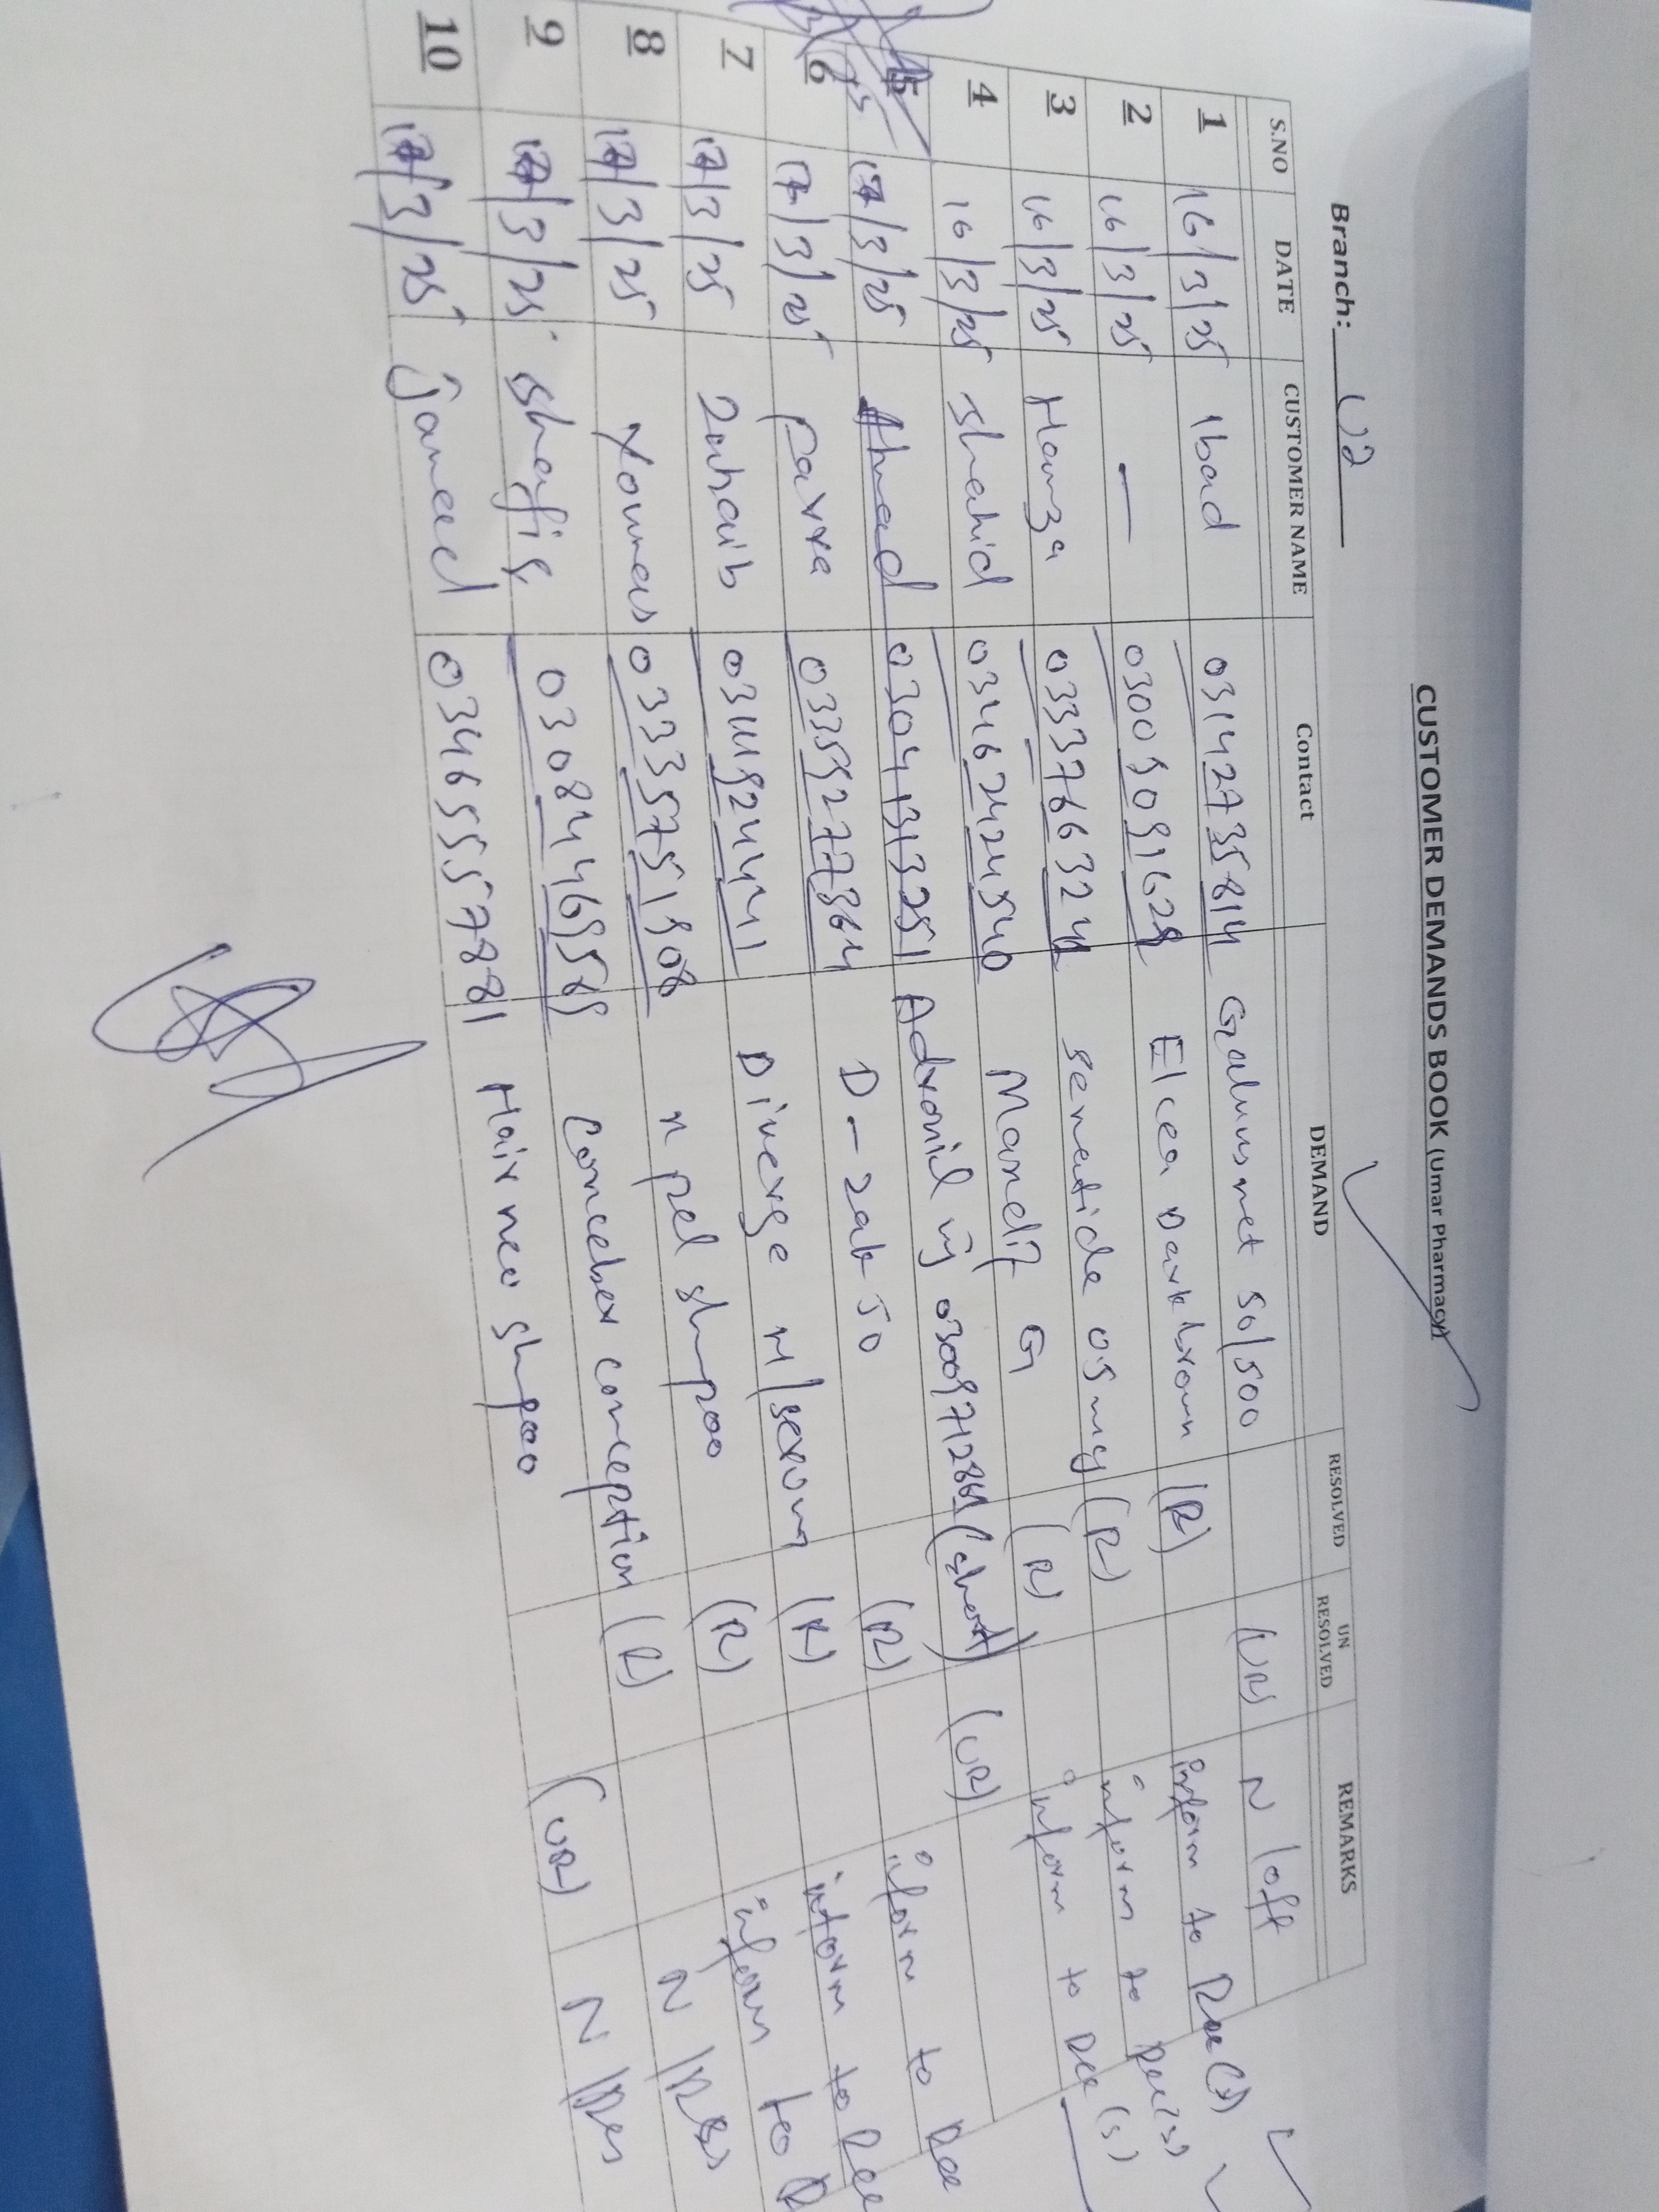 CUSTOMER DEMANDS BOOK (Umar Pharmacy)
Branch: U2
S.NO DATE CUSTOMER NAME Contact DEMAND RESOLVED UN RESOLVED REMARKS
1 16/3/25 Ibad 03142735814 Galvusmet 50/500 (UR) N loft
2 16/3/25 — 03005091628 Elcea Dark brown (R) inform to Rec (s)
3 16/3/25 Hamza 03337663244 sematide 0.5 mg (R) inform to Rec (s)
4 16/3/25 Shahid 03462424540 Mandit G (R) inform to Rec (s)
5 17/3/25 Ahmad 03041313251 Adronil inj 03009712861 (short) (UR)
6 17/3/25 Parra 03352777364 D-Zab 50 (R) inform to Rec
7 17/3/25 Zuhaib 03111924441 Diverge M/serum (R) inform to Rec
8 17/3/25 Younas 03335751908 n pel shmpoo (R) inform to R
9 17/3/25 Shafiq 03084469589 Conceber conception (R) N/Res
10 17/3/25 Jameel 03465557881 Hair neo shpoo (UR) N/Res